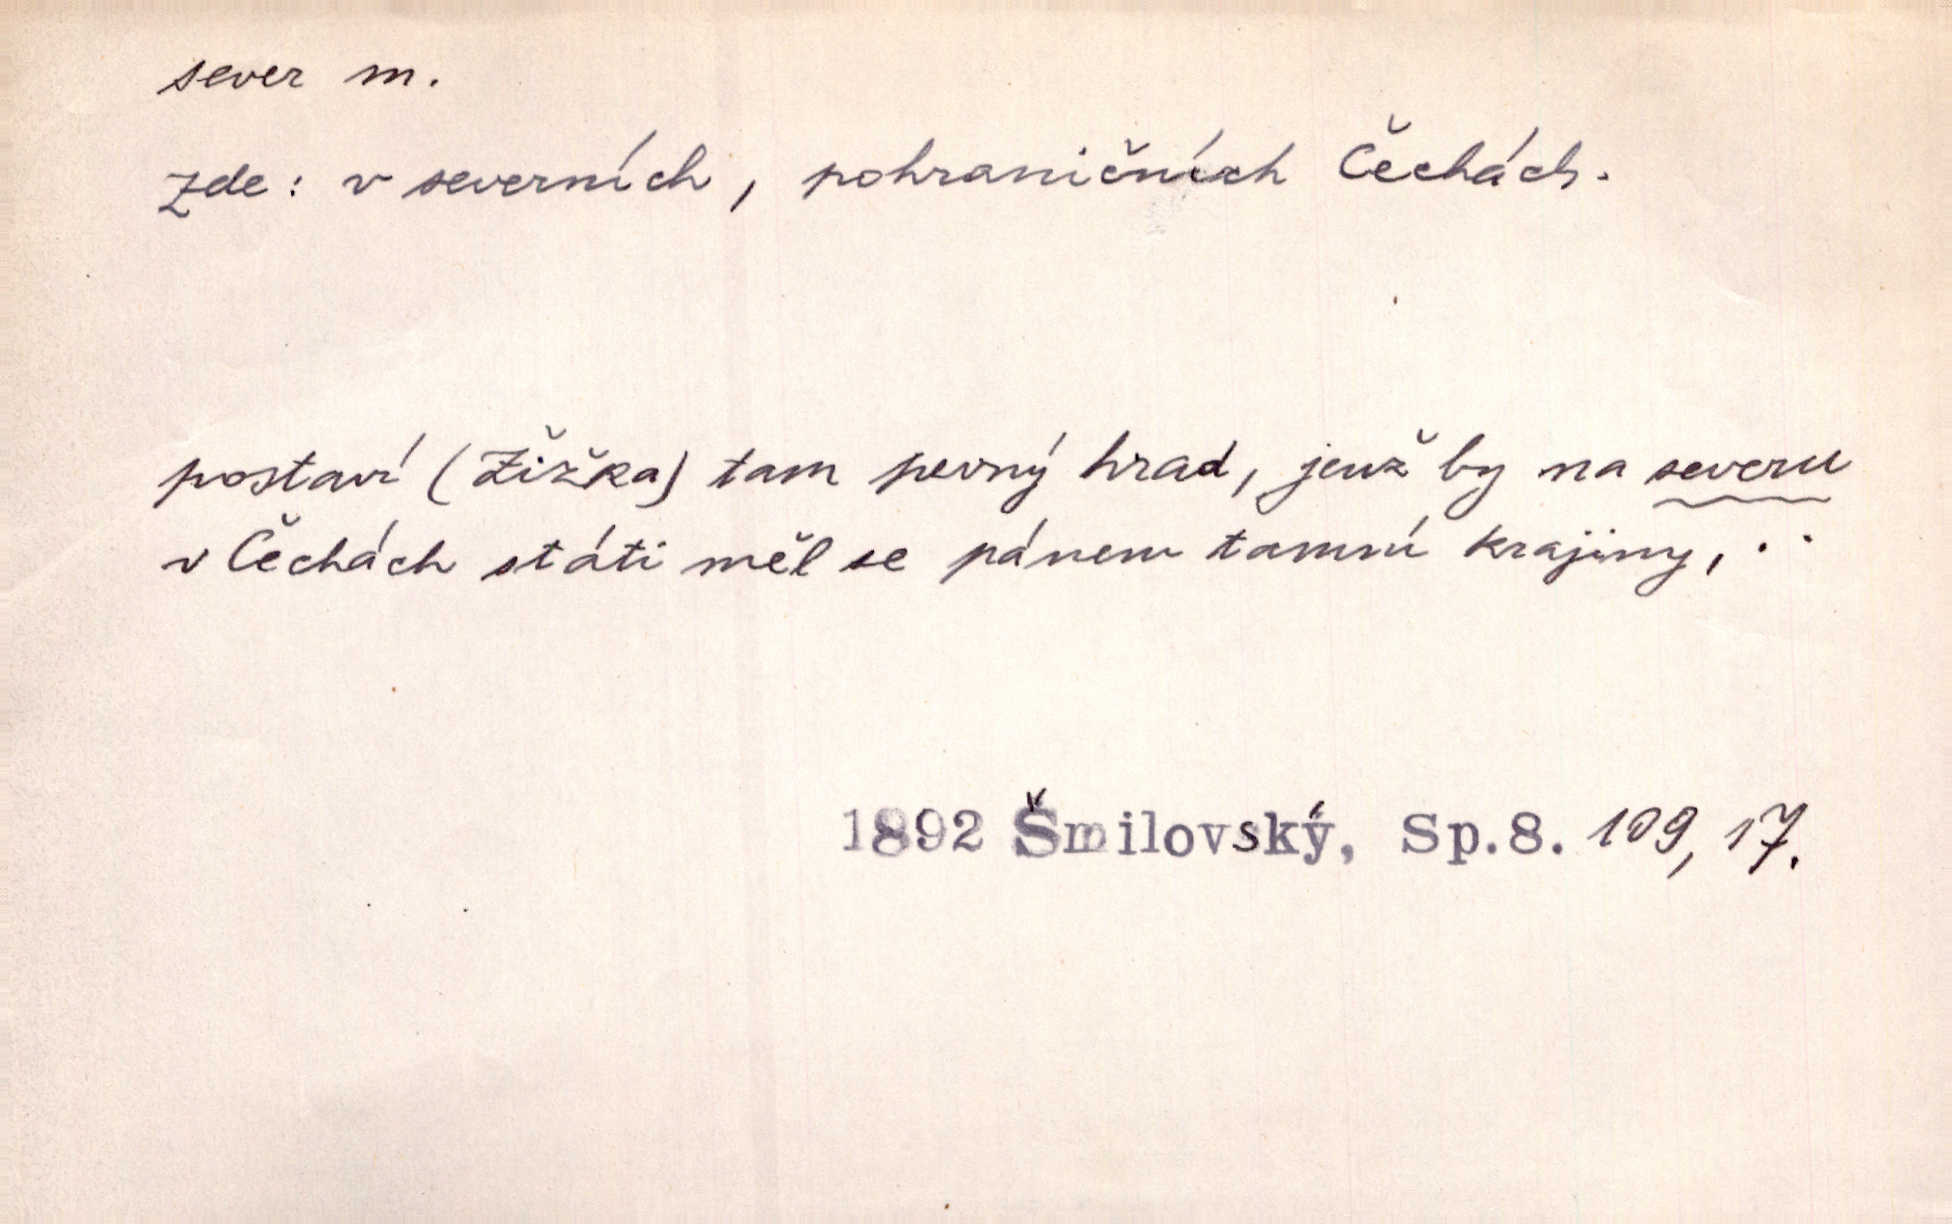 sever m.
Zde: v severních, pohraničních Čechách.
postaví (Žižka) tam pevný hrad, jenž by na severu
v Čechách státi měl se pánem tamní krajiny, . .
1892 Šmilovský, Sp.8. 109, 17.